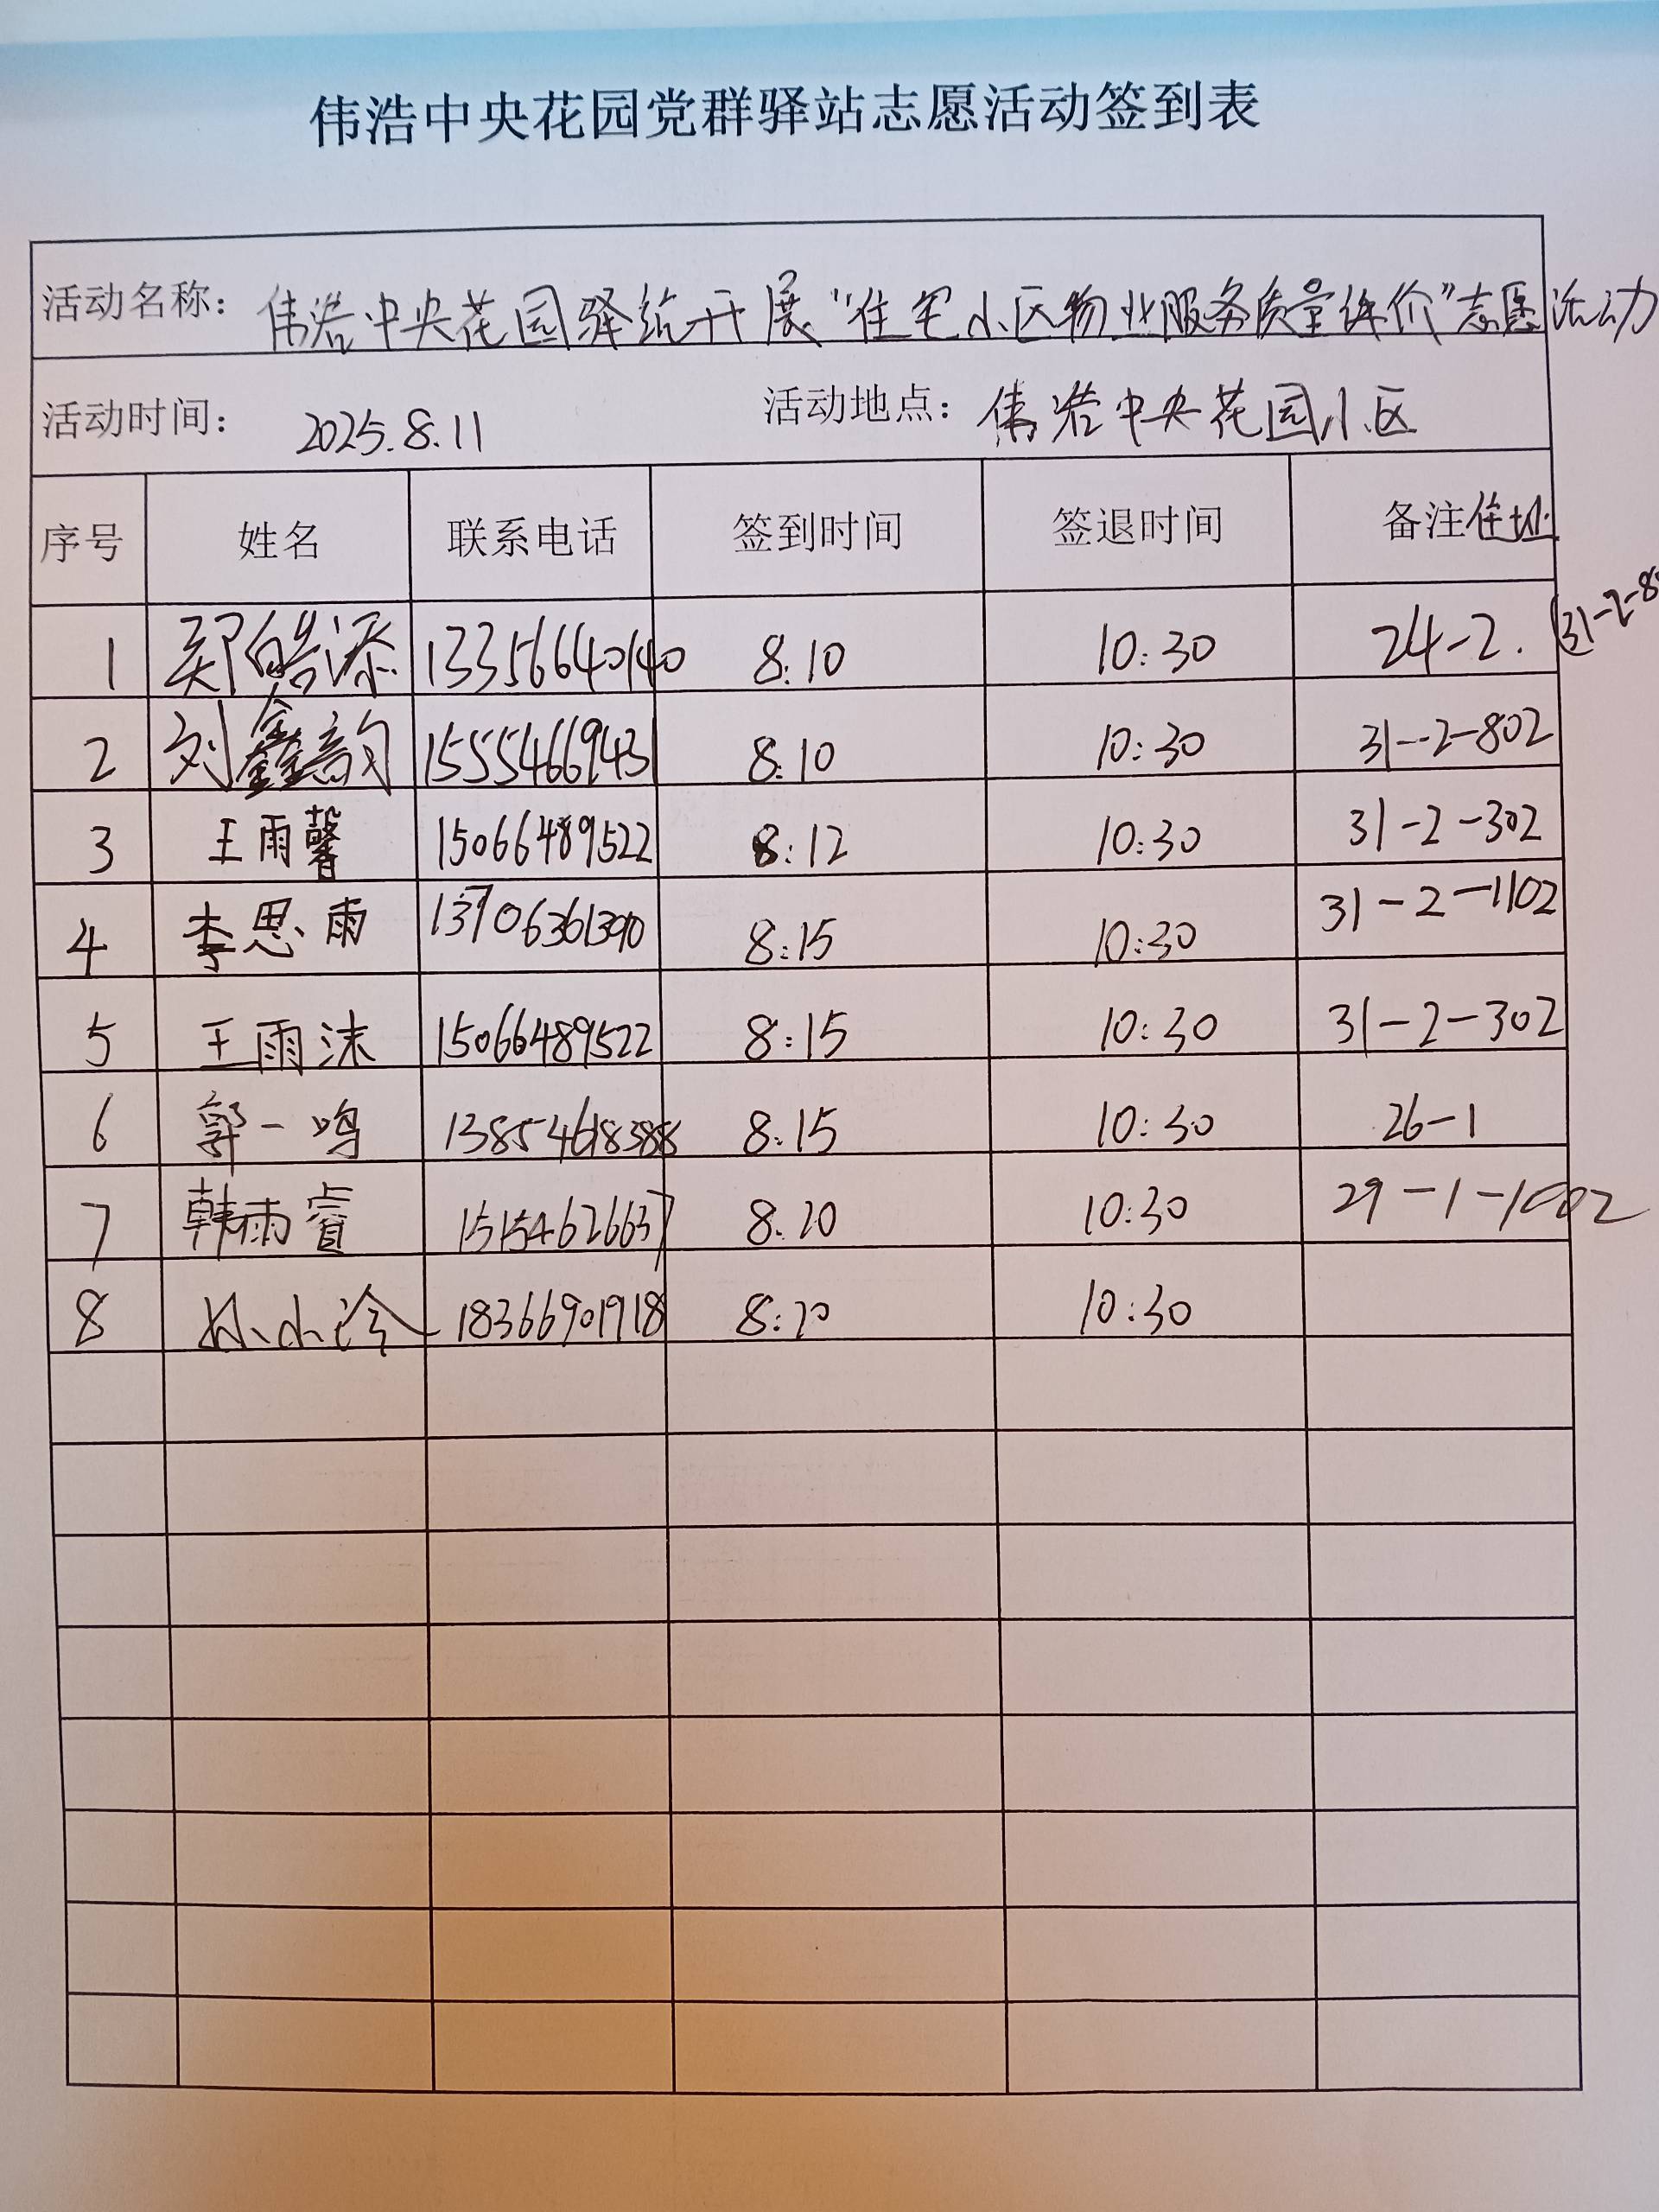 伟浩中央花园党群驿站志愿活动签到表
活动名称：伟浩中央花园驿站开展“住宅小区物业服务质量评价”志愿活动
活动时间：2025.8.11 活动地点：伟浩中央花园小区
序号 姓名 联系电话 签到时间 签退时间 备注住址
1 郑皓添 13356640140 8:10 10:30 24-2. (31-2-8
2 刘鑫韵 15554669431 8:10 10:30 31-2-802
3 王雨馨 15066489522 8:12 10:30 31-2-302
4 李思雨 13706361390 8:15 10:30 31-2-1102
5 王雨沫 15066489522 8:15 10:30 31-2-302
6 郭一鸣 13854618388 8:15 10:30 26-1
7 韩雨睿 15154626637 8:20 10:30 29-1-1002
8 孙小冷 18366901918 8:20 10:30